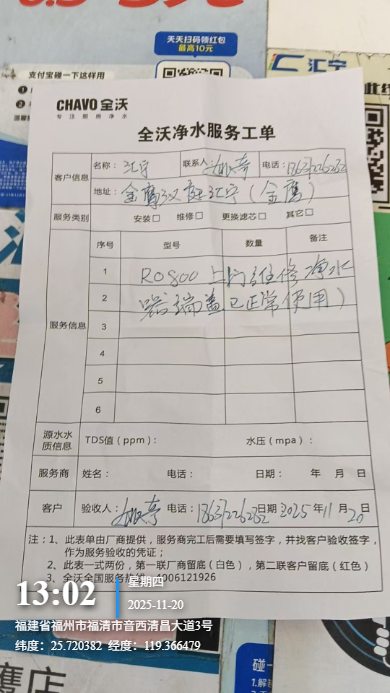 天天扫码领红包
最高10元
支付宝碰一下这样用
汇宁
CHAVO 全沃
专注厨房净水
全沃净水服务工单
客户信息
名称：汇宁
联系人：
电话：
地址：
服务类别
安装□ 维修□ 更换滤芯□ 其它□
服务信息
序号 型号 数量 备注
1 RO800上门维修净水
2 器端盖已正常使用）
3
4
5
6
源水水质信息
TDS值（ppm）： 水压（mpa）：
服务商 姓名： 电话： 日期： 年 月 日
客户 验收人： 电话： 日期 2025年11月20
注：1、此表单由厂商提供，服务商完工后需要填写签字，并找客户验收签字，
作为服务验收的凭证；
2、此表一式两份，第一联厂商留底（白色），第二联客户留底（红色）
3、全沃全国服务
006121926
13:02
星期四
2025-11-20
福建省福州市福清市音西清昌大道3号
纬度：25.720382 经度：119.366479
碰一
店